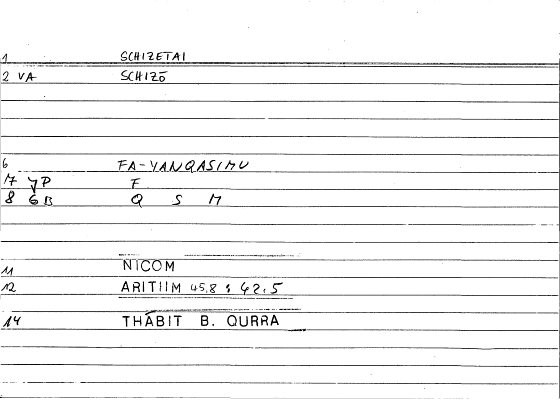 1 SCHIZETAI
2 VA SCHIZŌ
6 FA-YANQASIMU
7 YP F
8 GB Q S M
11 NICOM
12 ARITIIM 45.8 : 42.5
14 THĀBIT B. QURRA